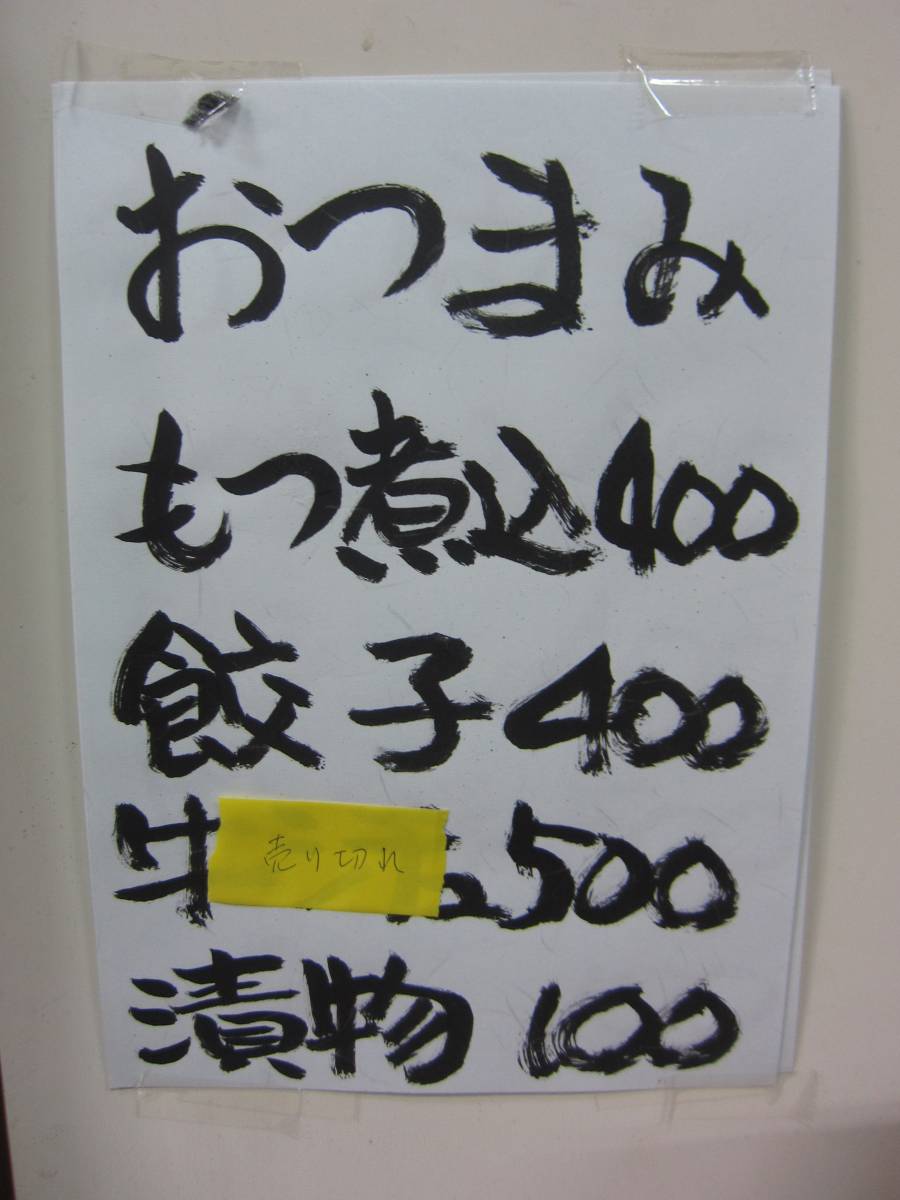 おつまみ
もつ煮込400
餃子400
牛 500
売り切れ
漬物 100